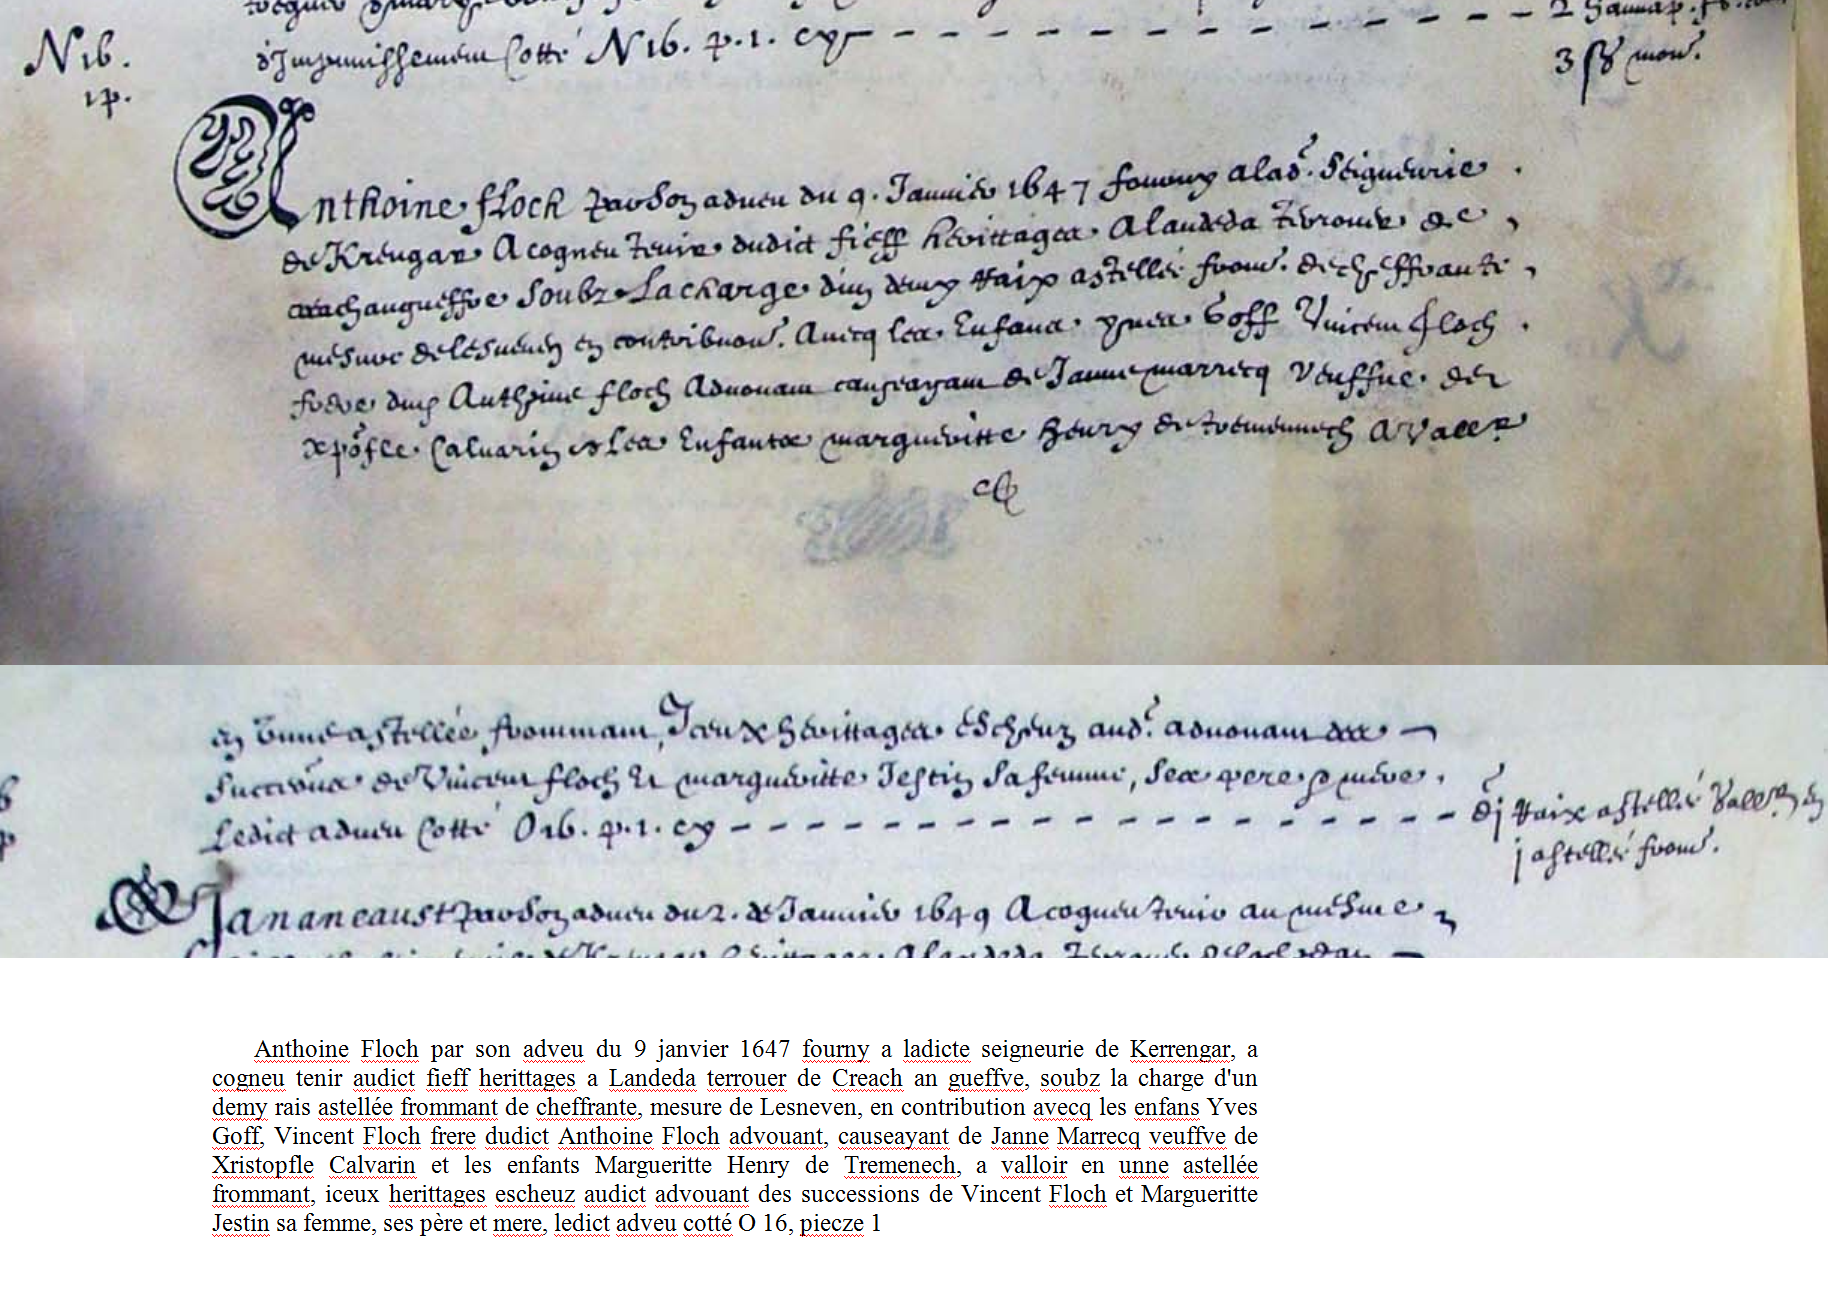 N 16. p. 1. cy
N16.
1p.
Anthoine Floch par son adveu du 9. Janvier 1647 fourny a lad. Seigneurie
de Krengar A cogneu tenir dudict fieff herittages A landeda terrouer de
creachangueffve Soubz La charge dun demy Raix astellée from. de cheffrante
mesure de lesneven en contribuon. Avecq les Enfans yves Goff Vincent Floch
frere dud Anthoine Floch Advouant causeayant de Janne marrecq veuffve de
xpofle Calvarin et Les Enfants margueritte Henry de tremenech A Vallr
en unne astellée frommant, Iceux herittages escheuz aud. advouant des
Succions de Vincent floch Et margueritte Jestin sa femme, ses pere et mere,
Ledict adveu Cotté O 16. p. 1. cy
Raix astellée Vallr en
j astellée from.
Jan aneaust par son adveu du 2. de Janvier 1649 A cogneu tenir au mesme
Anthoine Floch par son adveu du 9 janvier 1647 fourny a ladicte seigneurie de Kerrengar, a
cogneu tenir audict fieff herittages a Landeda terrouer de Creach an gueffve, soubz la charge d'un
demy rais astellée frommant de cheffrante, mesure de Lesneven, en contribution avecq les enfans Yves
Goff, Vincent Floch frere dudict Anthoine Floch advouant, causeayant de Janne Marrecq veuffve de
Xristopfle Calvarin et les enfants Margueritte Henry de Tremenech, a valloir en unne astellée
frommant, iceux herittages escheuz audict advouant des successions de Vincent Floch et Margueritte
Jestin sa femme, ses père et mere, ledict adveu cotté O 16, piecze 1